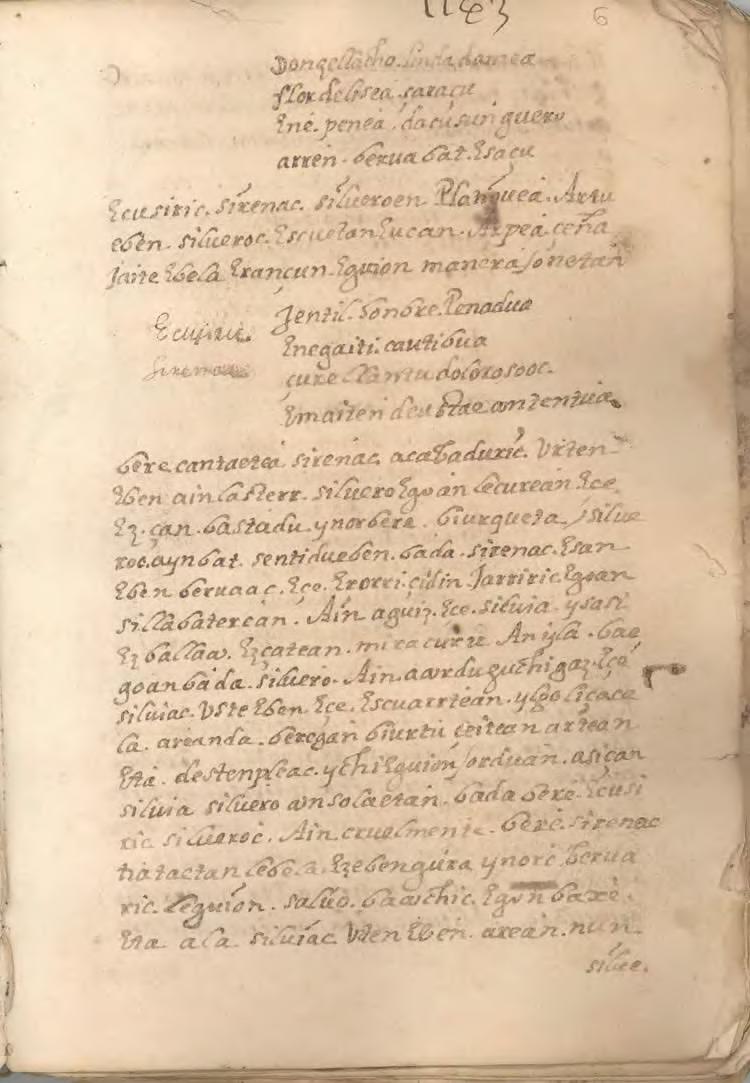 1143
6
Donzellacho. linda damea
flor delisea. çaraçu
Ene. penea. daçusun guero
arren. berua bat. Esaçu
Ecusiric. sirenac. silueroen Planguea. Artu
eben. silueroc. Escuetan Eucan. Arpea. ceña
Jaite Ebela Erançun. Eguion manera onetan
Jentil. honbre. Penadua
Enegaiti. cautibua
çure llantu dolorosooc.
Emaiten deustae
Ecusiric.
sirena
bere cantaetea sirenac. acabaduric. Urten
Eben ain lasterr. siluero Egoan lecurean. Ece
Ez. çan. bastadu. ynor bere. biurqueta. silue
roc. ayn bat. sentidu eben. bada. sirenac. Esan
Eben beruaac. Ece. Erorri. cidin Jarriric. Egoan
silla baterean. Ain aguiz. Ece. siluia. ysasi
Ez ballaco. Ezcatean. Anyla. bae
goan bada. siluero. Ain. gach Ece
siluiac. Uste Eben. Ece. Escuartean.
la. areanda. beregan biurtu ceitean artean
Eta. destenpleac. ychi Eguion orduan. asi çan
siluia siluero consolaetan. bada bere. Ecusi
ric silueroc. Ain. cruelmente. bere. sirenac
trataetan lebela. Ez eben gura ynore berua
ric. leguion. salbo. bacochic. Egon baxe.
Eta ala siluiac. Urten Eben. arean. nun
silue.